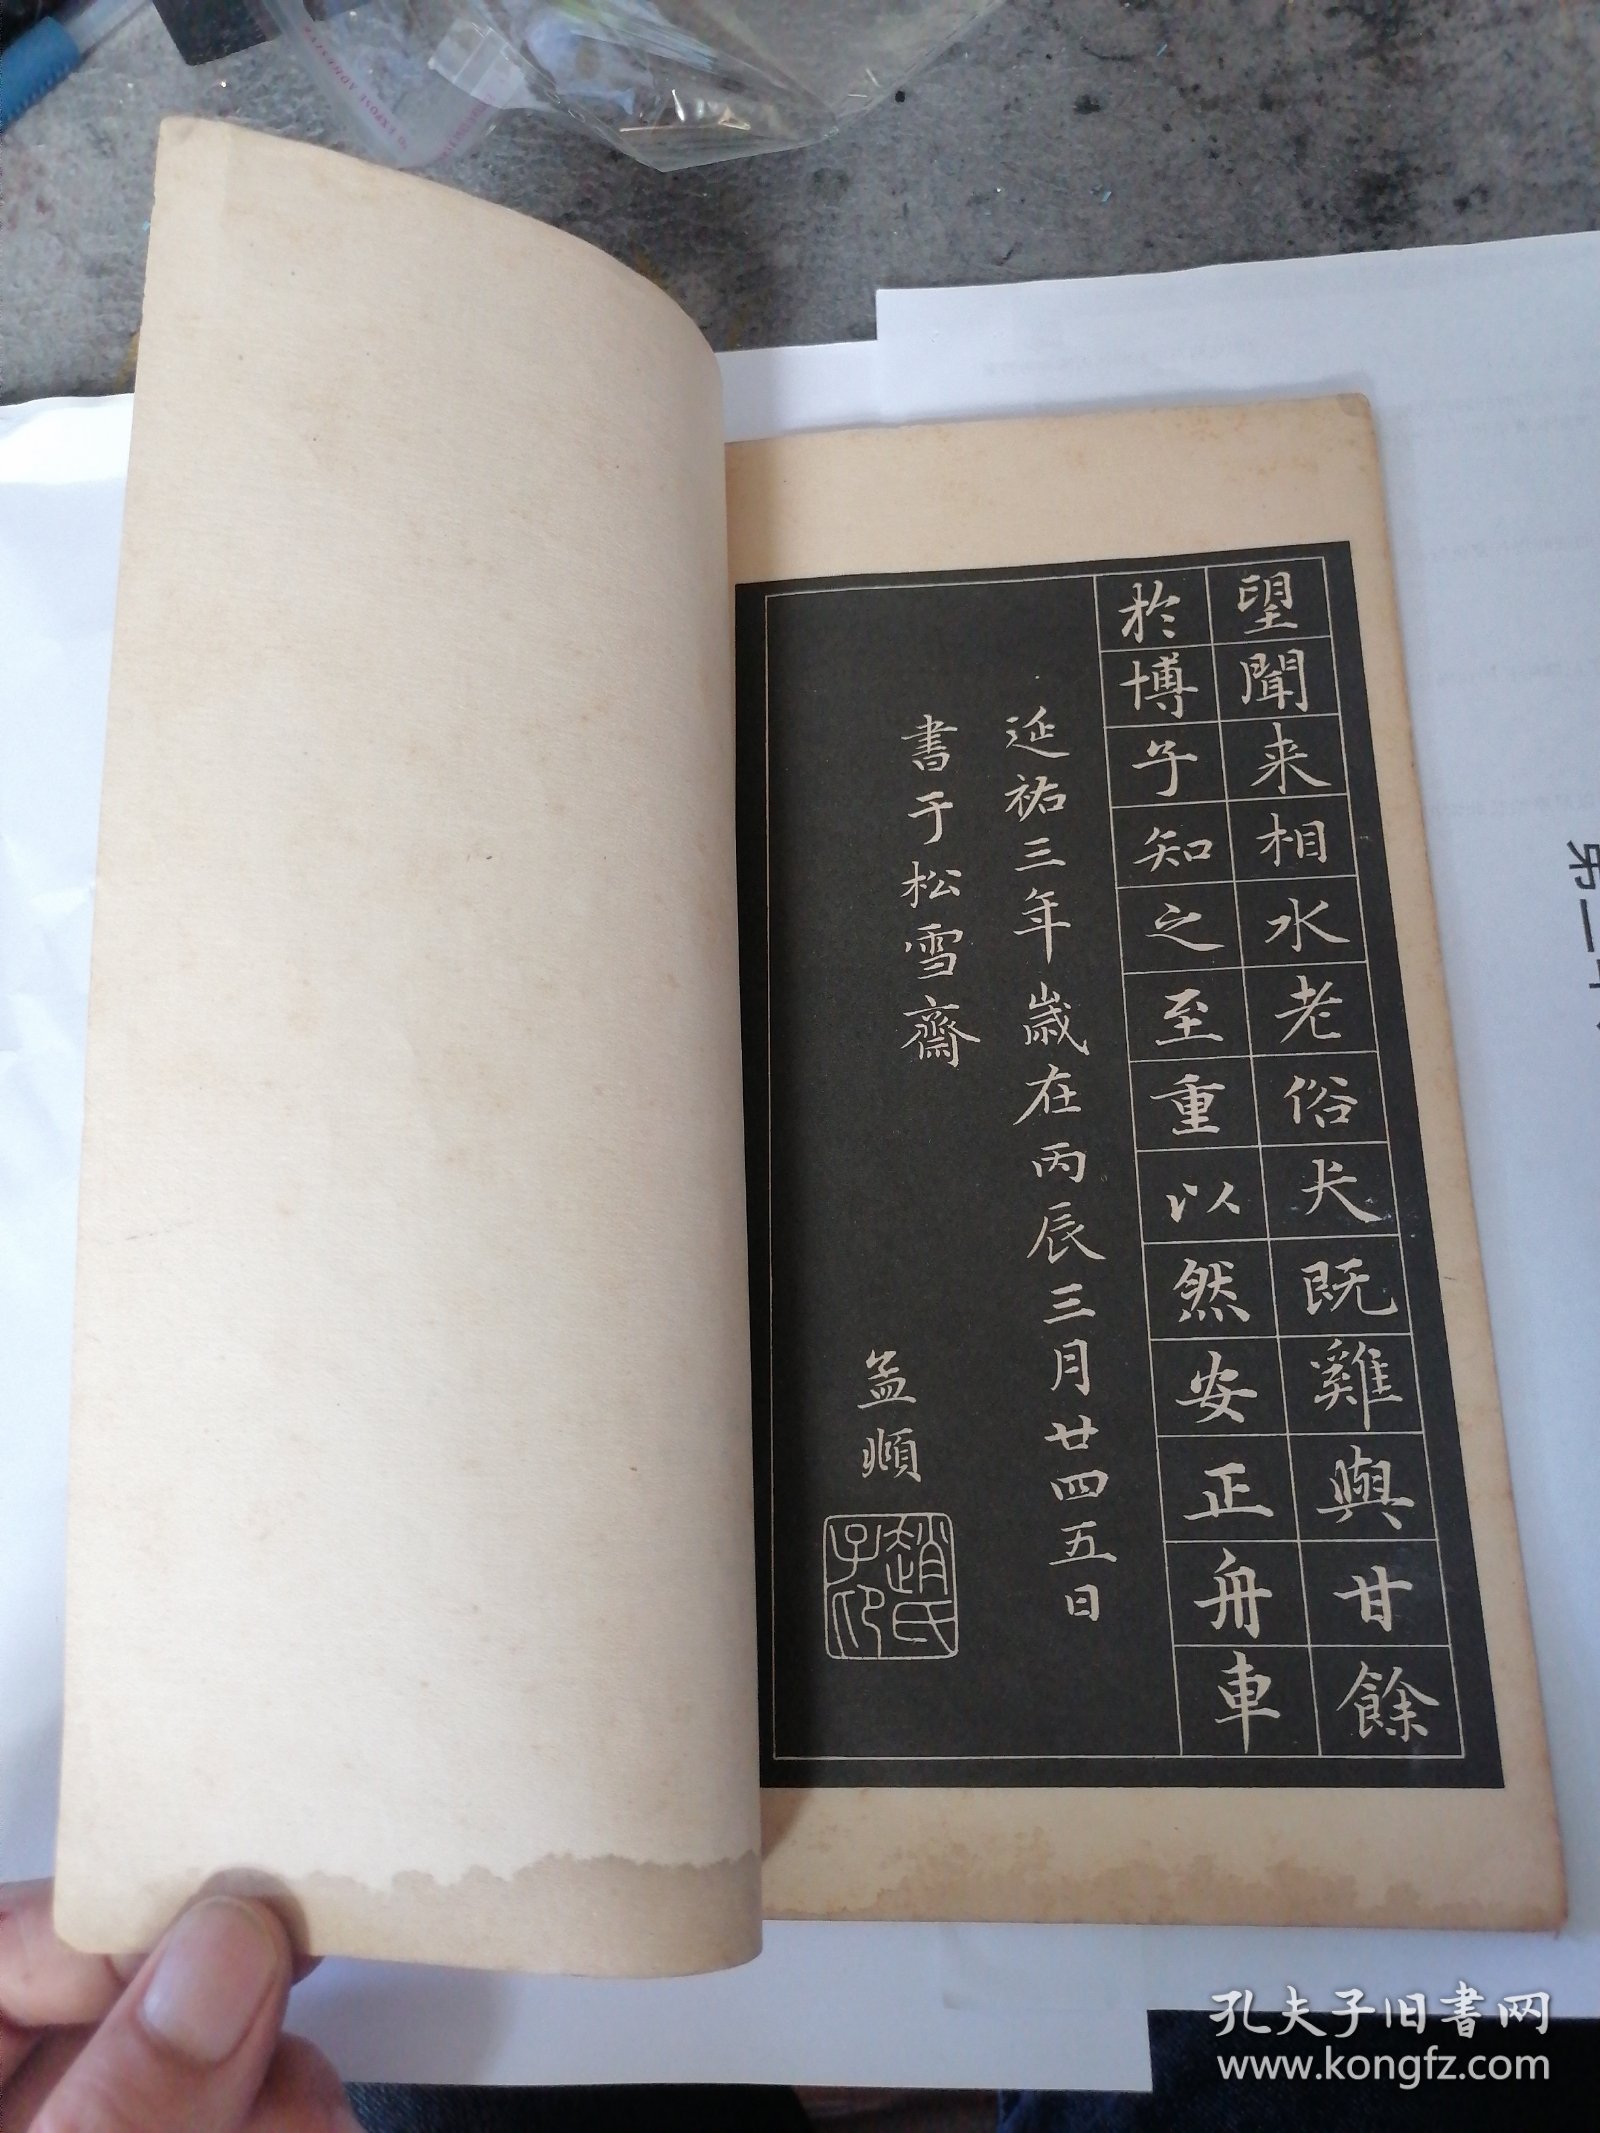 望聞来相水老俗犬既雞與甘餘
於博子知之至重以然安正舟車
延祐三年歲在丙辰三月廿四五日
書于松雪齋
孟順
趙氏
子印
孔夫子旧书网
www.kongfz.com